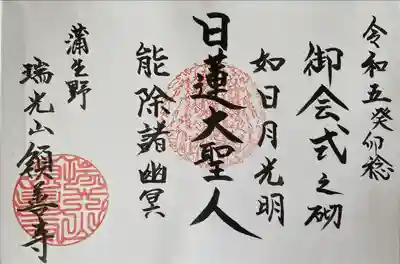 令和五癸卯稔
御会式之砌
如日月光明
日蓮大聖人
能除諸幽冥
蒲生野
瑞光山願善寺